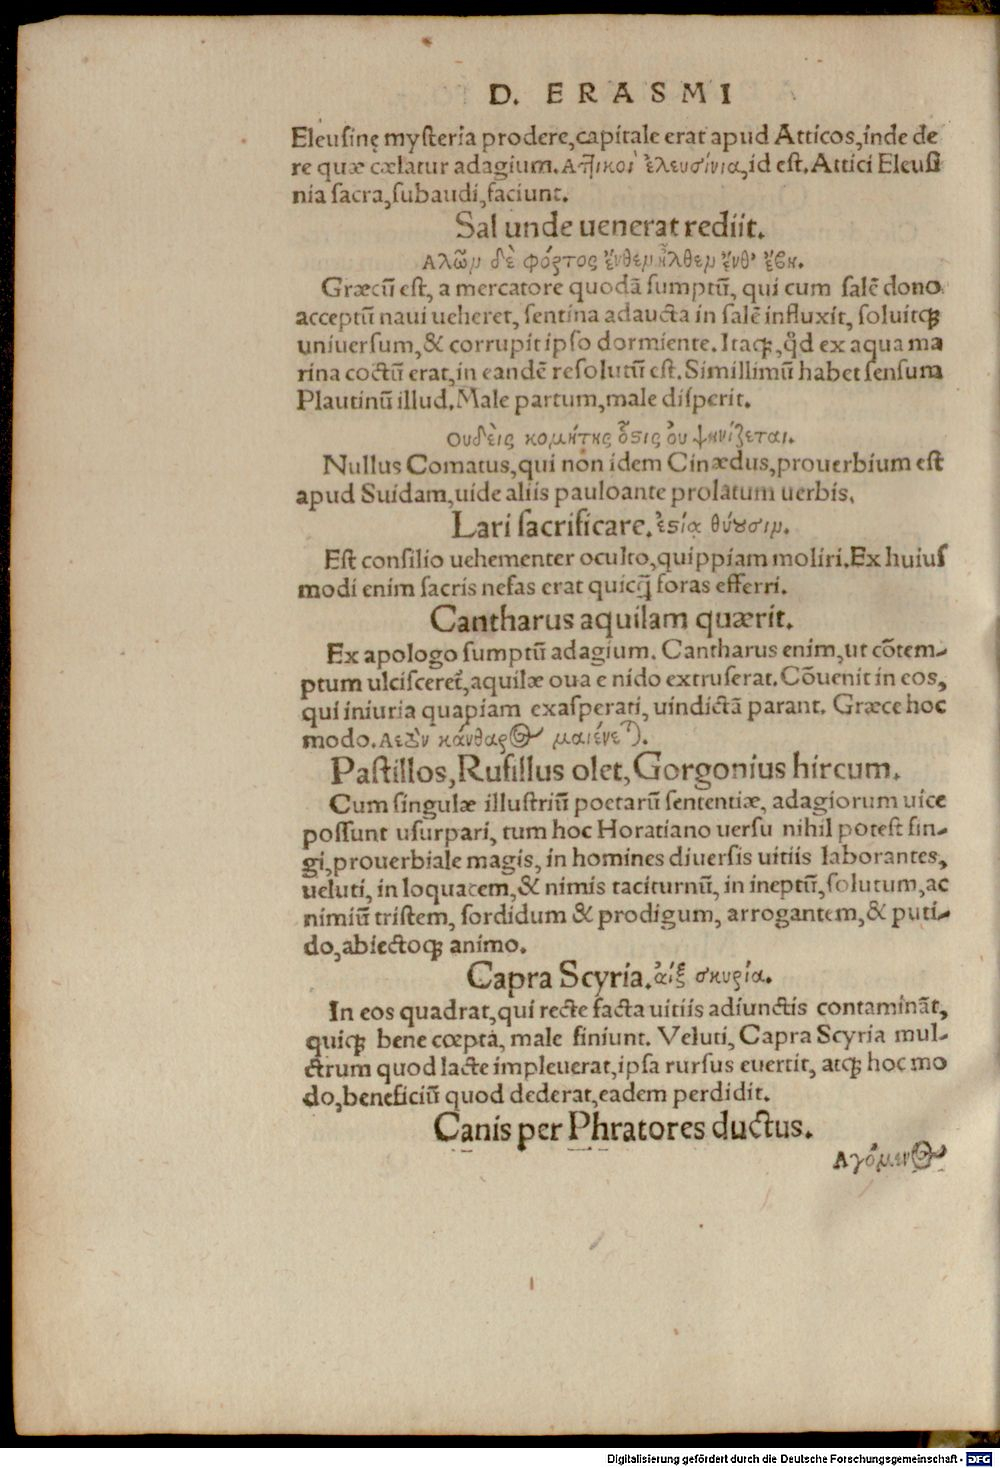 D. ERASMI
Eleusinę mysteria prodere, capitale erat apud Atticos, inde de
re quæ cælatur adagium. Ατ̓ικοὶ ἐλευσίνια, id est. Attici Eleusi
nia sacra, subaudi, faciunt.
Sal unde uenerat rediit.
Αλῶν δὲ φόρτος ἔνθεν ἦλθεν ἔνθ' ἔβη.
Græcū est, a mercatore quodā sumptū, qui cum salē dono
acceptū naui ueheret, sentina adaucta in salē influxit, soluitqꝫ
uniuersum, & corrupit ipso dormiente. Itaqꝫ, qd̓ ex aqua ma
rina coctū erat, in eandē resolutū est. Simillimū habet sensum
Plautinū illud. Male partum, male disperit.
Ουδεὶς κομήτης ὅστις ὀυ ψηνίζεται.
Nullus Comatus, qui non idem Cinædus, prouerbium est
apud Suidam, uide aliis pauloante prolatum uerbis.
Lari sacrificare. ἑστίᾳ θύουσιν.
Est consilio uehementer oculto, quippiam moliri. Ex huius
modi enim sacris nefas erat quicq̄ foras efferri.
Cantharus aquilam quærit.
Ex apologo sumptū adagium. Cantharus enim, ut cōtem-
ptum ulcisceret̃, aquilæ oua e nido extruserat. Cōuenit in eos,
qui iniuria quapiam exasperati, uindictā parant. Græce hoc
modo. Αετὸν κάνθαρος μαιέυεται.
Pastillos, Rufillus olet, Gorgonius hircum.
Cum singulæ illustriū poetarū sententiæ, adagiorum uice
possunt usurpari, tum hoc Horatiano uersu nihil potest fin-
gi, prouerbiale magis, in homines diuersis uitiis laborantes,
ueluti, in loquacem, & nimis taciturnū, in ineptū, solutum, ac
nimiū tristem, sordidum & prodigum, arrogantem, & puti-
do, abiectoqꝫ animo.
Capra Scyria. ἀίξ σκυρία.
In eos quadrat, qui recte facta uitiis adiunctis contamināt,
quiqꝫ bene cœpta, male finiunt. Veluti, Capra Scyria mul-
ctrum quod lacte impleuerat, ipsa rursus euertit, atqꝫ hoc mo
do, beneficiū quod dederat, eadem perdidit.
Canis per Phratores ductus.
Αγόμενος
Digitalisierung gefördert durch die Deutsche Forschungsgemeinschaft - DFG